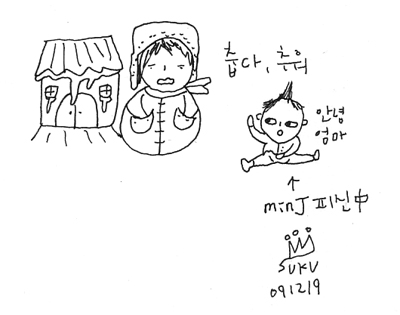 춥다, 추워
안녕
엄마
minJ 피신中
SUKU
091219